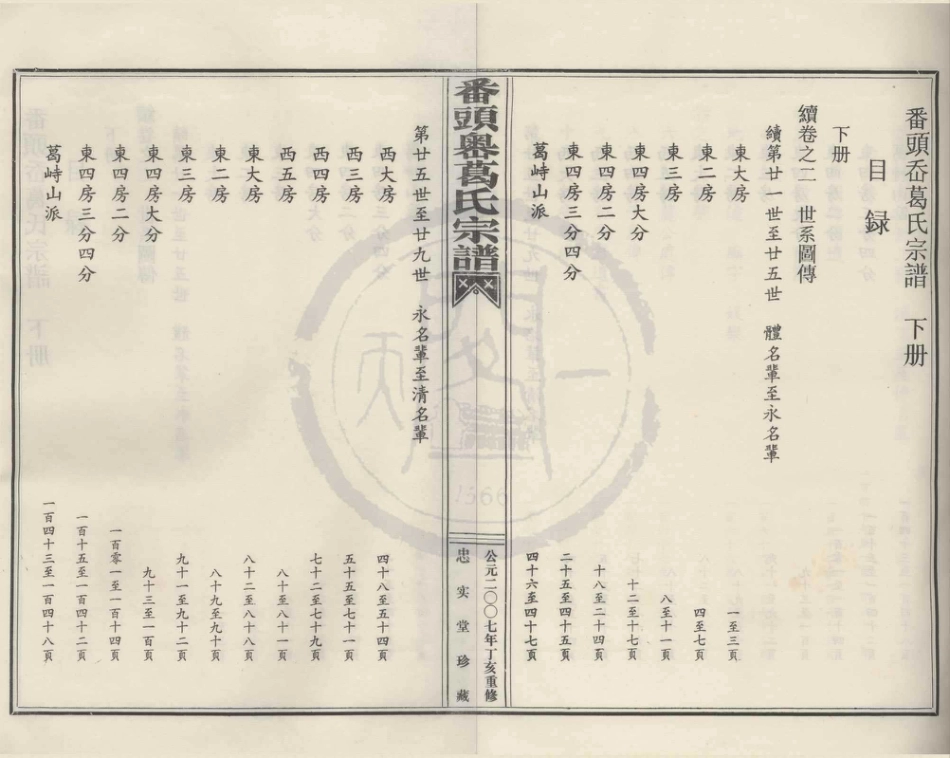 番頭岙葛氏宗譜 下册
目 录
下册
續卷之二 世系圖傳
續第廿一世至廿五世 體名輩至永名輩
東大房 一至三頁
東二房 四至七頁
東三房 八至十一頁
東四房大分 十二至十七頁
東四房二分 十八至二十四頁
東四房三分四分 二十五至四十五頁
葛峙山派 四十六至四十七頁
番頭嶴葛氏宗譜
公元二〇〇七年丁亥重修
忠实堂珍藏
第廿五世至廿九世 永名輩至清名輩
西大房 四十八至五十四頁
西三房 五十五至七十一頁
西四房 七十二至七十九頁
西五房 八十至八十一頁
東大房 八十二至八十八頁
東二房 八十九至九十頁
東三房 九十一至九十二頁
東四房大分 九十三至一百頁
東四房二分 一百零一至一百十四頁
東四房三分四分 一百十五至一百四十二頁
葛峙山派 一百四十三至一百四十八頁
1566